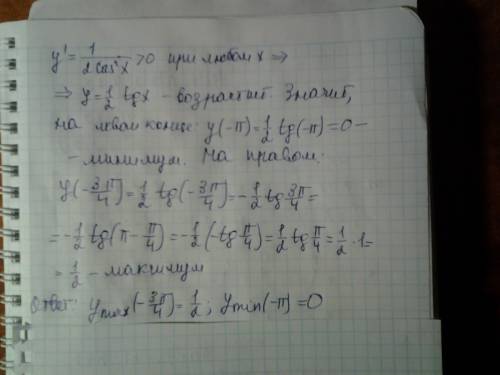 y' = 1/(2cos²x) > 0 при любом x ⇒
⇒ y = 1/2 tgx - возрастает. Значит,
на левом конце: y(-π) = 1/2 tg(-π) = 0 -
- минимум. На правом:
y(-3π/4) = 1/2 tg(-3π/4) = -1/2 tg 3π/4 =
= -1/2 tg(π - π/4) = -1/2(-tg π/4) = 1/2 tg π/4 = 1/2 · 1 =
= 1/2 - максимум
Ответ: ymax(-3π/4) = 1/2; ymin(-π) = 0